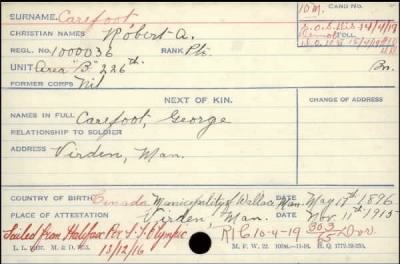 SURNAME. Carefoot
CARD NO.
CHRISTIAN NAMES Robert A.
REGL. NO. 1000036 RANK Pte
UNIT Area "B" 226th. Bn.
FORMER CORPS Nil
NEXT OF KIN.
CHANGE OF ADDRESS
NAMES IN FULL Carefoot, George
RELATIONSHIP TO SOLDIER
ADDRESS Virden, Man.
COUNTRY OF BIRTH Canada Municipality of Wallace Man. DATE May 17th 1896
PLACE OF ATTESTATION Virden, Man. DATE Nov 11th 1915
Sailed from Halifax Per S.S. Olympic R/C 10-4-19 303/65
13/12/16
M. F. W. 22.